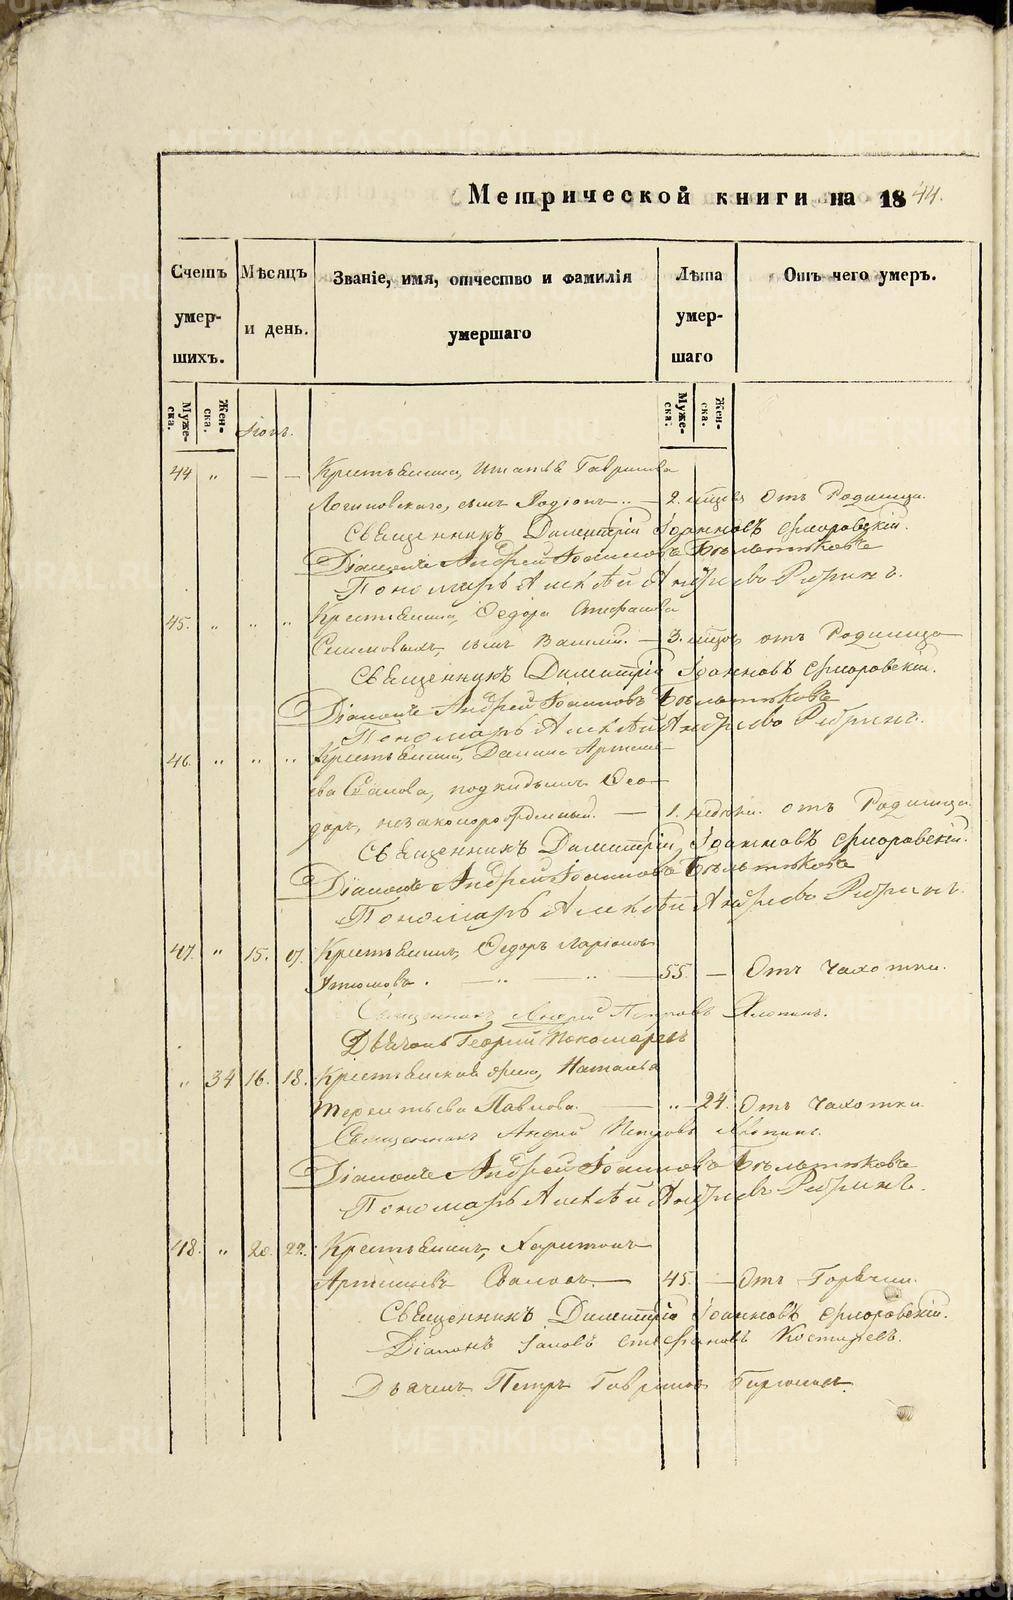 Метрической книги на 1844.
Счетъ умершихъ.
Мѣсяцъ и день.
Званіе, имя, отчество и фамилія умершаго
Лѣта умершаго
Отъ чего умеръ.
Мужеска.
Женска.
Мужеска.
Женска.
44 „ — — Крестьянина, Игнатья Гаврилова
сынъ Родіонъ. — 2. мѣсяц. Отъ Родимца.
Священникъ Димитрій Іоанновъ Флоровскій.
Діаконъ Андрей Іоанновъ Бѣльтюковъ
Пономарь Алексѣй Андреевъ Ребринъ.
45. „ „ „ Крестьянина, Федора Стефанова
сынъ Василій. — 3. мѣсяц. отъ Родимца
Священникъ Димитрій Іоанновъ Флоровскій.
Діаконъ Андрей Іоанновъ Бѣльтюковъ
Пономарь Алексѣй Андреевъ Ребринъ.
46. „ „ „ Крестьянина, Данила Артемье-
ва Свалова, подкидышъ Фео-
доръ, незаконорожденный. — 1. недѣли. отъ Родимца
Священникъ Димитрій Іоанновъ Флоровскій.
Діаконъ Андрей Іоанновъ Бѣльтюковъ
Пономарь Алексѣй Андреевъ Ребринъ.
47. „ 15. 17. Крестьянинъ, Федоръ Ларіоновъ
Утюмовъ. — „ — 55. — Отъ чахотки.
Священникъ Андрей Петровъ Хлопинъ.
Дьячекъ Георгій Пономаревъ
„ 34 16. 18. Крестьянская жена, Наталья
Терентьева Павлова. — „ — 24. Отъ чахотки
Священникъ Андрей Петровъ Хлопинъ.
Діаконъ Андрей Іоанновъ Бѣльтюковъ
Пономарь Алексѣй Андреевъ Ребринъ.
48. „ 20. 22. Крестьянинъ, Харитонъ
Артемьевъ Сваловъ. — 45. — Отъ Горячки.
Священникъ Димитрій Іоанновъ Флоровскій.
Діаконъ Іаковъ Стефановъ Костаревъ.
Дьячекъ Петръ Гавриловъ
METRIKI.GASO-URAL.RU